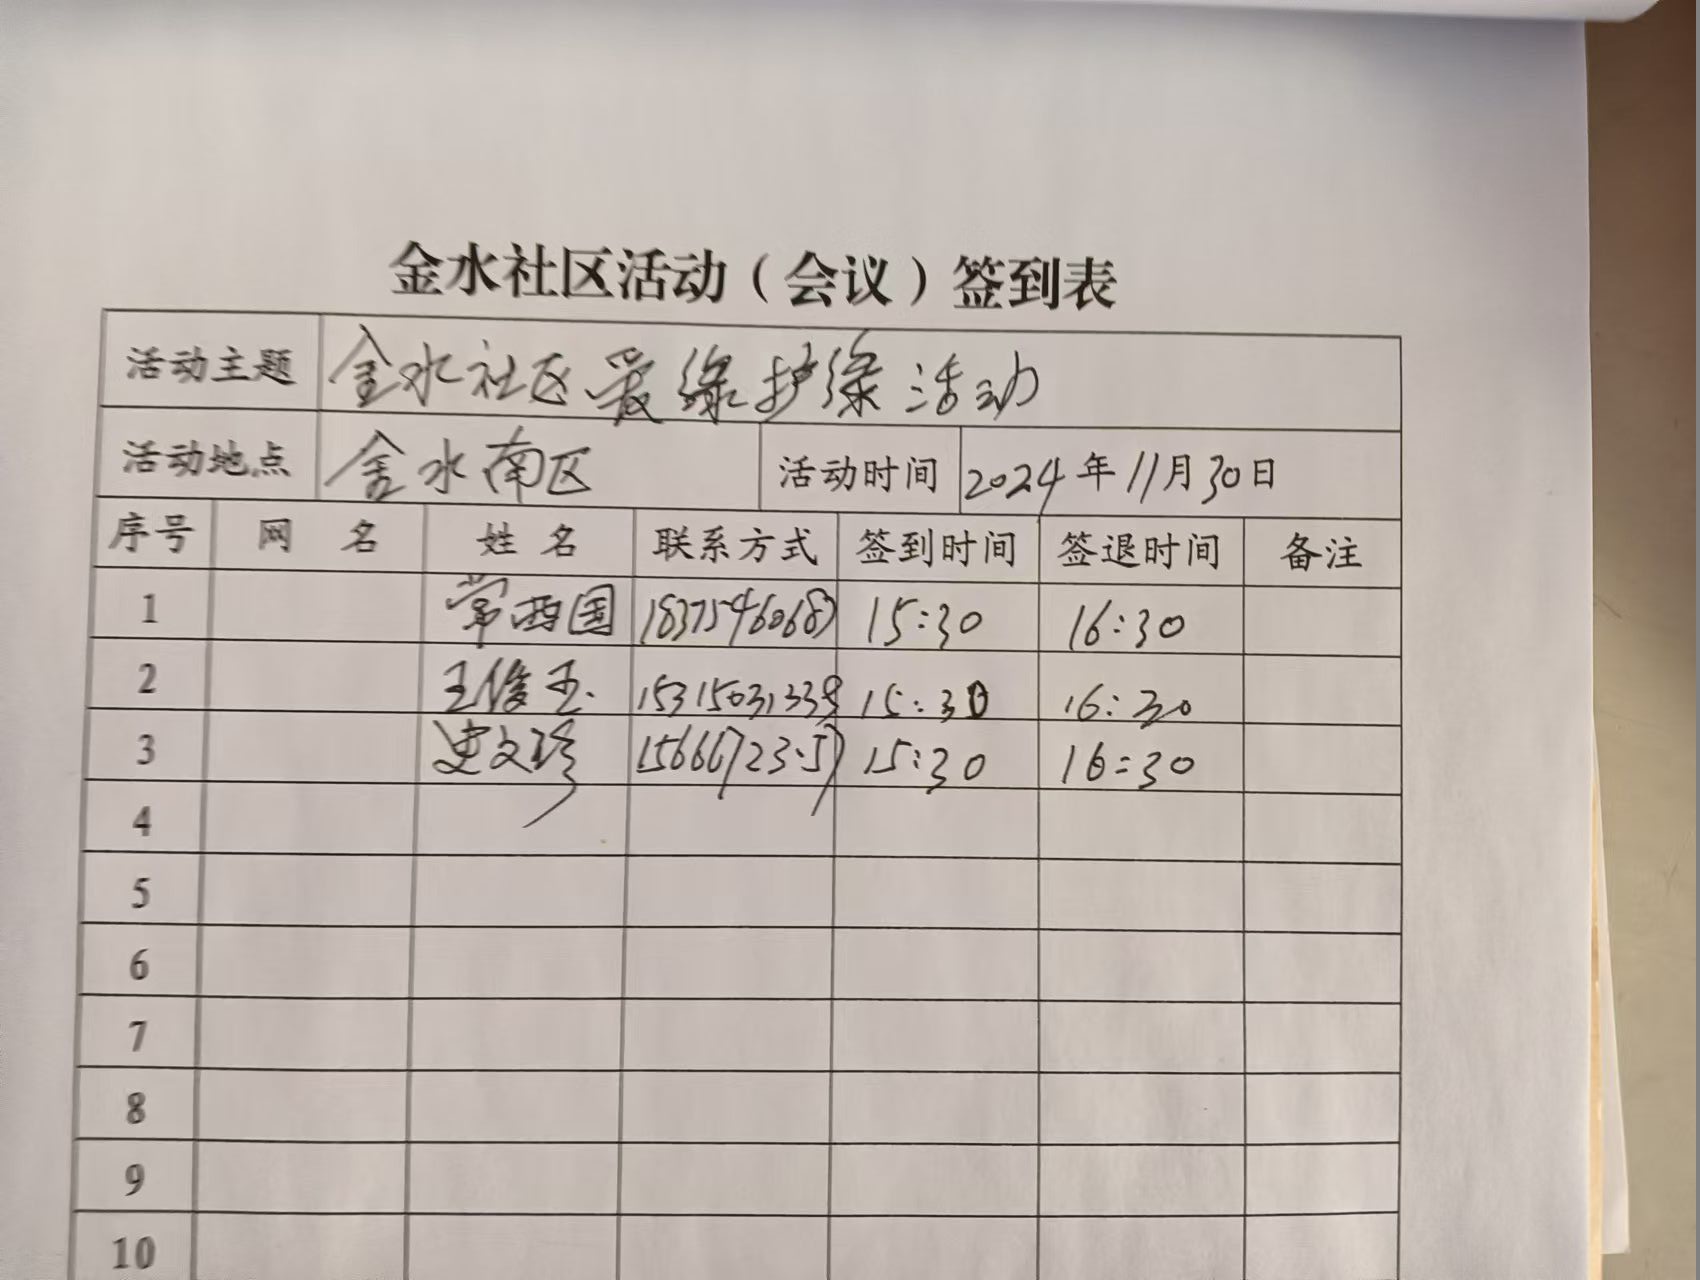 金水社区活动（会议）签到表
活动主题 金水社区爱绿护绿活动
活动地点 金水南区 活动时间 2024年11月30日
序号 网 名 姓 名 联系方式 签到时间 签退时间 备注
1 常西国 15:30 16:30
2 王俊玉 15:30 16:30
3 史文珍 15:30 16:30
4
5
6
7
8
9
10